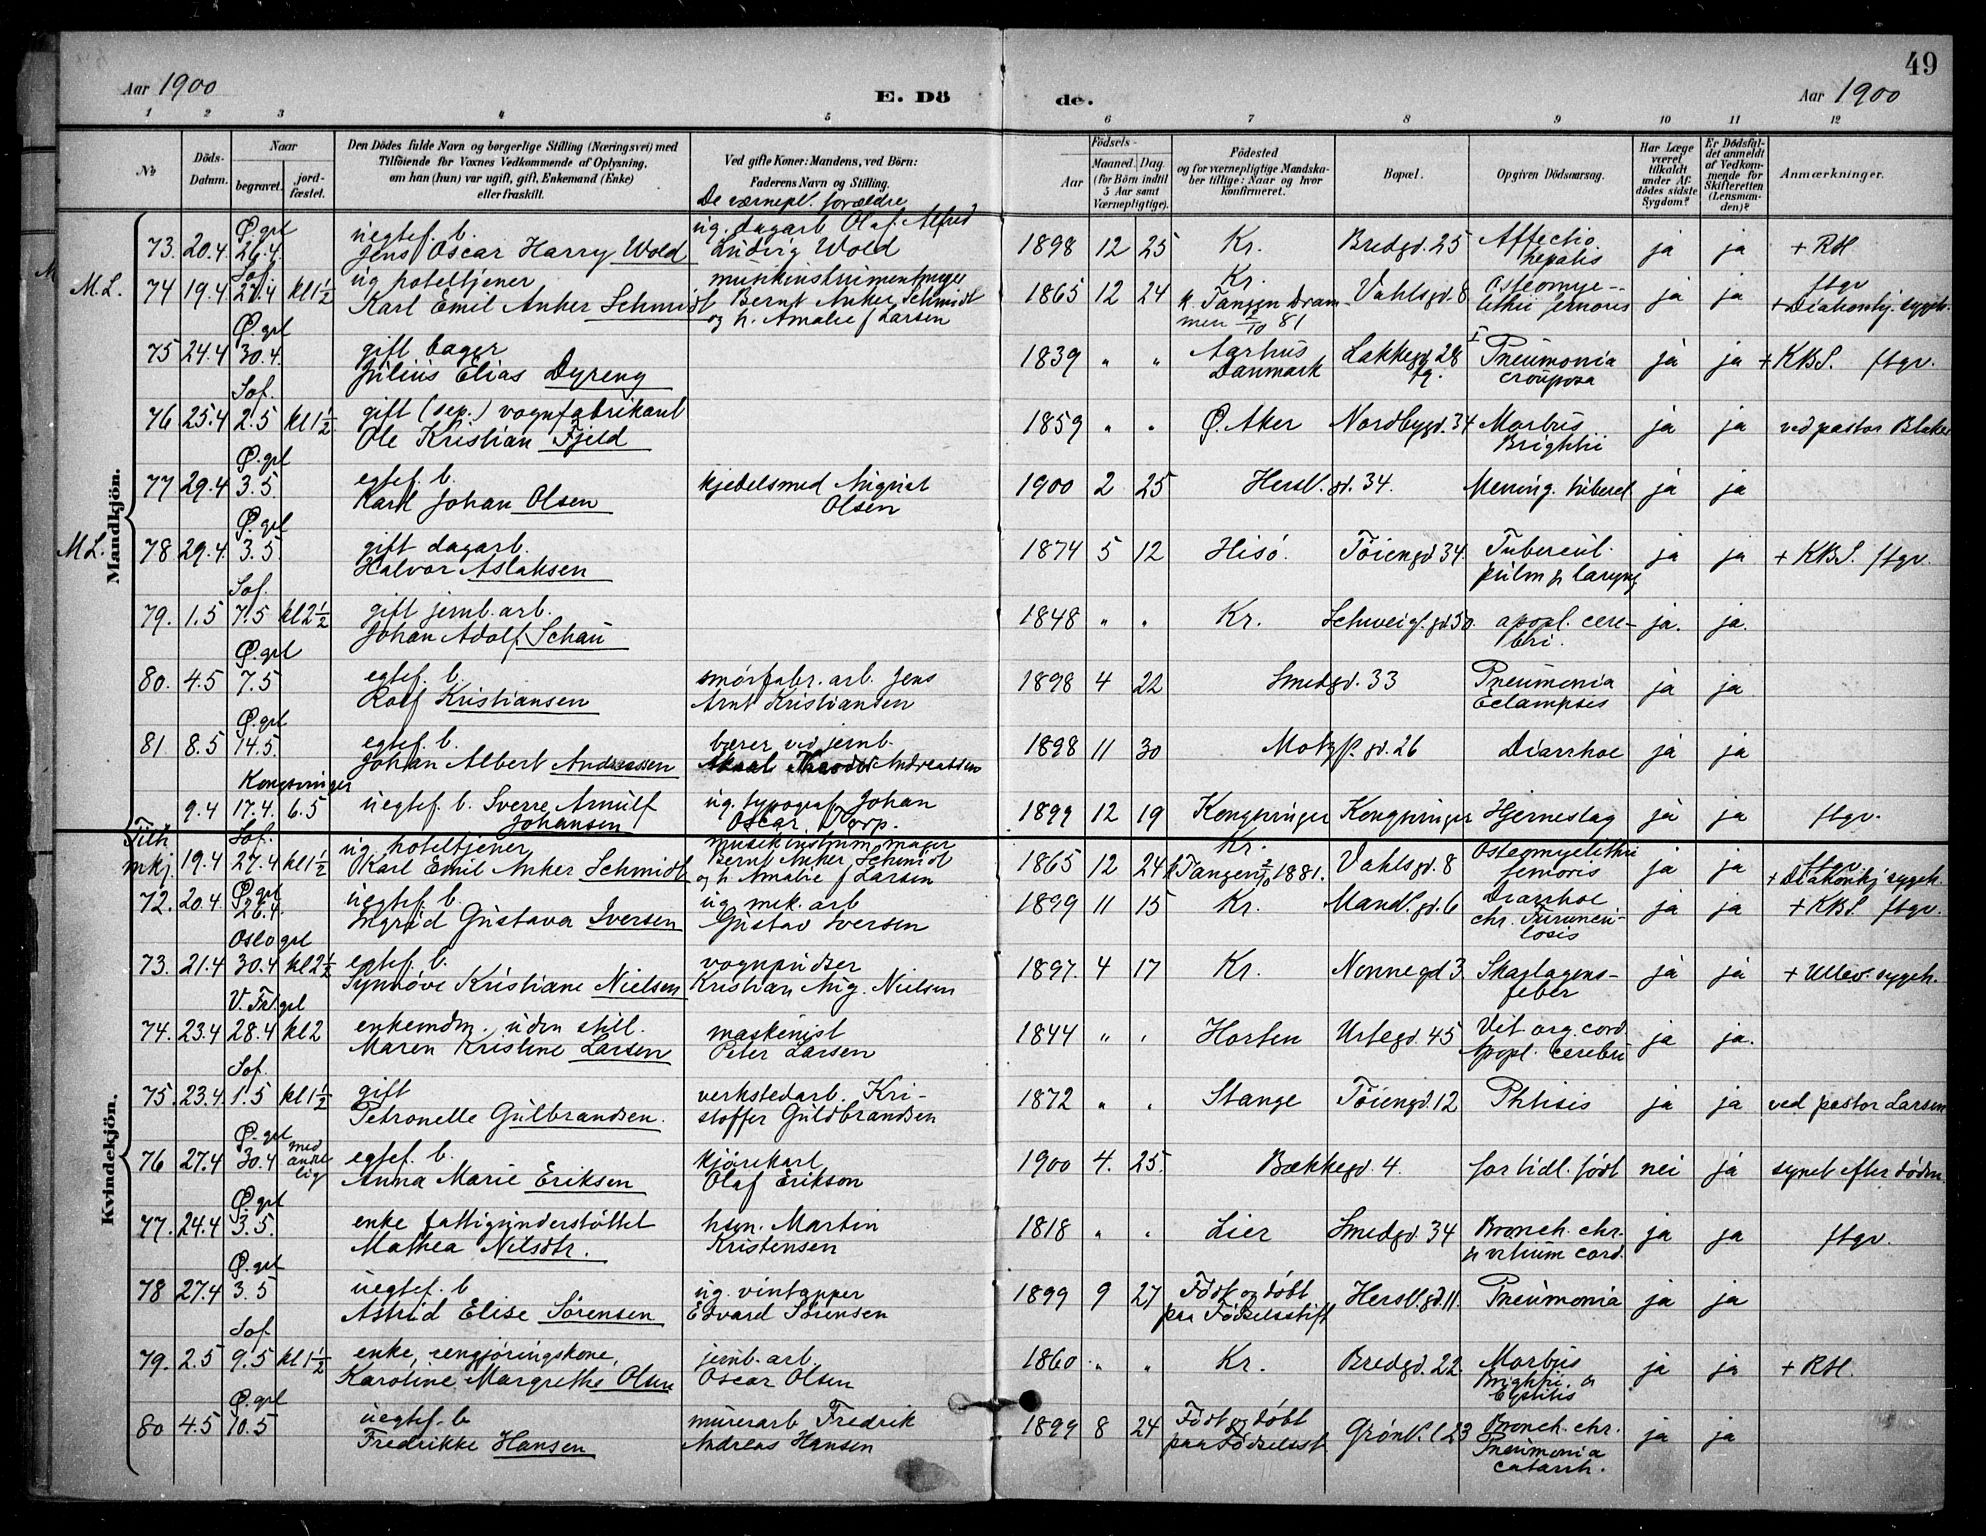 49
Aar 1900
E. Dö
de.
Aar 1900
1 2 3 4 5 6 7 8 9 10 11 12
No
Döds-Datum.
Naar
begravet.
jord-fæstet.
Den Dödes fulde Navn og borgerlige Stilling (Næringsvei) med
Tilföiende for Voxnes Vedkommende af Oplysning,
om han (hun) var ugift, gift, Enkemand (Enke)
eller fraskilt.
Ved gifte Koner: Mandens, ved Börn:
Faderens Navn og Stilling.
De værnepl. forældre
Aar
Födsels-
Maaned. Dag.
(for Börn indtil
5 Aar samt
Værnepligtige).
Födested
og for værnepligtige Mandska-
ber tillige: Naar og hvor
konfirmeret.
Bopæl.
Opgiven Dödsaarsag.
Har Læge
været
tilkaldt
under Af-
dödes sidste
Sygdom?
Er Dödsfal-
det anmeldt
af Vedkom-
mende for
Skifteretten
(Lensman-
den)?
Anmærkninger.
Mandkjön.
73. 20.4 Ø.grl 26.4. uegtef. b. Jens Oscar Harry Wold ug. dagarb Olaf Alfred Ludvig Wold 1898 12 25 Kr. Bredgd. 25 Affectio hepatis ja ja + RH
M.L. 74 19.4 Sof. 27.4 kl 1½ ug hoteltjener Karl Emil Anker Schmidt musikinstrumentmager Bernt Anker Schmidt og h. Amalie f Larsen 1865 12 24 Kr. k. Tangen Drammen 2/10 81 Vahlsgd. 8 Osteomyelithii femoris ja ja ftgv + Diakonhj. sygeh.
75 24.4 Ø.grl 30.4. gift bager Julius Elias Dyreng 1839 " " Aarhus Danmark Lakkegd 28 Pneumonia crouposa ja ja + KBS. ftgv.
76 25.4 Sof. 2.5 kl 1½ gift (sep.) vognfabrikant Ole Kristian Fjeld 1859 " " Ø. Aker Nordbygd. 34 Morbus Brightii ja ja ved pastor Blaker
77 29.4 Ø.grl 3.5 egtef. b. Karl Johan Olsen kjedelsmed August Olsen 1900 2 25 Hersl. gd. 34. Mening. tubercl ja ja
M L. 78 29.4 Ø.grl 3.5. gift dagarb. Halvor Aslaksen 1874 5 12 Hisö. Töiengd 34. Tubercul. pulm & laryng ja ja + KBS. ftgv.
79. 1.5 Sof. 7.5 kl 2½ gift jernb. arb. Johan Adolf Schau 1848 " " Kr. Schweig. gd. 50. apopl. cerebri. ja. ja.
80. 4.5 Ø.grl 7.5 egtef. b. Rolf Kristiansen smörfabr. arb. Jens Arnt Kristiansen 1898 4 22 Smedgd. 33 Pneumonia Eclampsis ja ja
81 8.5 Ø.grl 14.5 egtef. b. Johan Albert Andreassen bærer ved jernb. Andreassen 1898 11 30 Motzf. gd. 26 Diarrhoe ja ja
9.4 Kongsvinger 17.4. 6.5 uegtef. b. Sverre Arnulf Johansen ug. typograf Johan Oscar Torp. 1899 12 19 Kongsvinger Kongsvinger Hjerneslag ja ja ftgv.
Tilh. mkj. 19.4 Sof. 27.4 kl 1½ ug. hoteltjener Karl Emil Anker Schmidt musikinstrum. mager Bernt Anker Schmidt og h. Amalie f Larsen 1865 12 24 Kr. k Tangen 2/10 1881. Vahlsgd. 8 Osteomyelithii femoris ja ja ftgv + Diakonhj sygeh.
Kvindekjön.
72. 20.4 Ø.grl 26.4. uegtef. b. Ingrid Gustava Iversen ug mek. arb Gustav Iversen 1899 11 15 Kr. Mandl. gd. 6 Diarrhoe chr. Furunculosis ja ja + KBS. ftgv.
73. 21.4 Oslo grl 30.4 kl 2½ egtef. b. Synnöve Kristiane Nielsen vognpudser Kristian Aug. Nielsen 1897. 4 17 Kr. Nonnegd 3. Skarlagensfeber ja ja + Ullev. sygeh.
74. 23.4 V. Fr. grl 28.4 kl 2 enkemdm. uden still. Maren Kristine Larsen maskinist Peter Larsen 1844 " " Horten Urtegd. 45 Vit. org. cord. Apopl. cerebri ja ja.
75. 23.4 Sof. 1.5 kl 1½ gift Petronelle Gulbrandsen. verkstedarb. Kristoffer Guldbrandsen 1872 " " Stange Töiengd. 12 Phtisis ja ja ved pastor Larsen
76 27.4 Ø.grl 30.4 med andet lig egtef. b. Anna Marie Eriksen kjörekarl Olaf Erikson 1900 4. 25. Bækkegd. 4. for tidl. födt nei ja synet efter döden.
77. 24.4 Ø.grl 3.5. enke fattigunderstöttet Mathea Nilsdtr. hsm. Martin Kristensen 1818 " " Lier Smedgd. 34 Bronch. chr. & vitium cord. ja ja ftgv.
78 27.4 Ø.grl 3.5 uegtef. b Astrid Elise Sörensen ug. vintapper Edvard Sörensen 1899 9 27 Födt og döbt paa Födselsstift Hersl. gd. 11. Pneumonia ja ja
79. 2.5 Sof. 9.5 kl 1½ enke, rengjöringskone, Karoline Margrethe Olsen jernb. arb. Oscar Olsen 1860 " " Kr. Bredgd. 22. Morbus Brightii. & Cystitis ja ja + RH.
80 4.5 Ø.grl 10.5 uegtef. b Fredrikke Hansen murerarb Fredrik Andreas Hansen 1899 8 24 Födt og döbt paa Födselsst Grönl. l 23 Bronch. chr. Pneumonia catarrh. ja ja